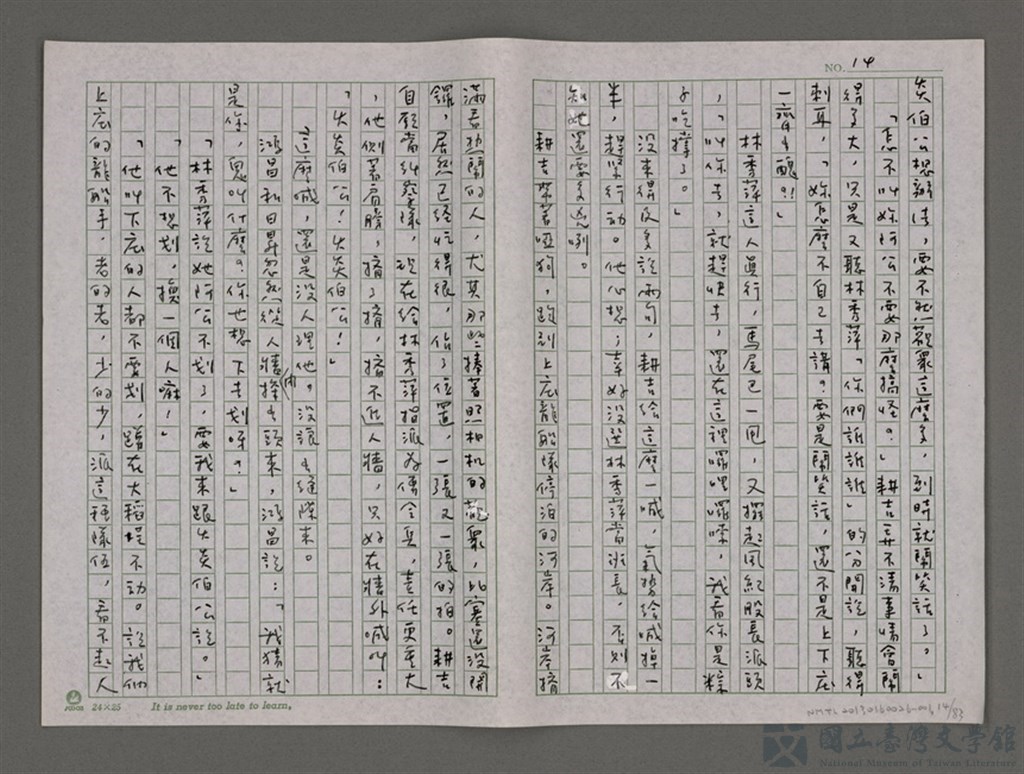 NO. 14
火炎伯公想辦法,要不然觀眾這麼多,到時就鬧笑話了。」
「怎不叫妳阿公不要那麼搞怪?」耕吉弄不清事情會鬧
得多大,只是又聽林秀萍「你們誰誰誰」的分開說,聽得
刺耳,「妳怎麼不自己去講?要是鬧笑話,還不是上下庄
一齊丟醜?!」
林秀萍這人真行,馬尾巴一甩,又擺起風紀股長派頭
,「叫你去,就趕快去,還在這裡囉哩囉嗦,我看你是粽
子吃撐了。」
沒來得及多說兩句,耕吉給這麼一喊,氣勢給喊掉一
半,趕緊行動。他心想:幸好沒選林秀萍當班長,否則不
知她還要多兇咧。
耕吉帶著啞狗,跑到上庄龍船隊停泊的河岸。河岸擠
滿看熱鬧的人,尤其那些捧著照相機的觀眾,比賽還沒開
鑼,居然已經忙得很,佔了位置,一張又一張的拍。耕吉
自願當糾察隊,現在給林秀萍指派為傳令兵,責任更重大
,他側著肩膀,擠了擠,擠不進人牆,只好在牆外喊叫:
「火炎伯公!火炎伯公!」
這麼喊,還是沒人理他。沒讓出縫隙來。
鴻昌和日昇忽然從人牆內探出頭來,鴻昌說:「我猜就
是你,鬼叫什麼?你也想下去划呀?」
「林秀萍說她阿公不划了,要我來跟火炎伯公說。」
「他不想划,換一個人嘛!」
「他叫下庄的人都不要划,蹲在大稻埕不動。說我們
上庄的龍船手,老的老,少的少,派這種隊伍,看不起人
24×25
It is never too late to learn.
國立臺灣文學館
National Museum of Taiwan Literature